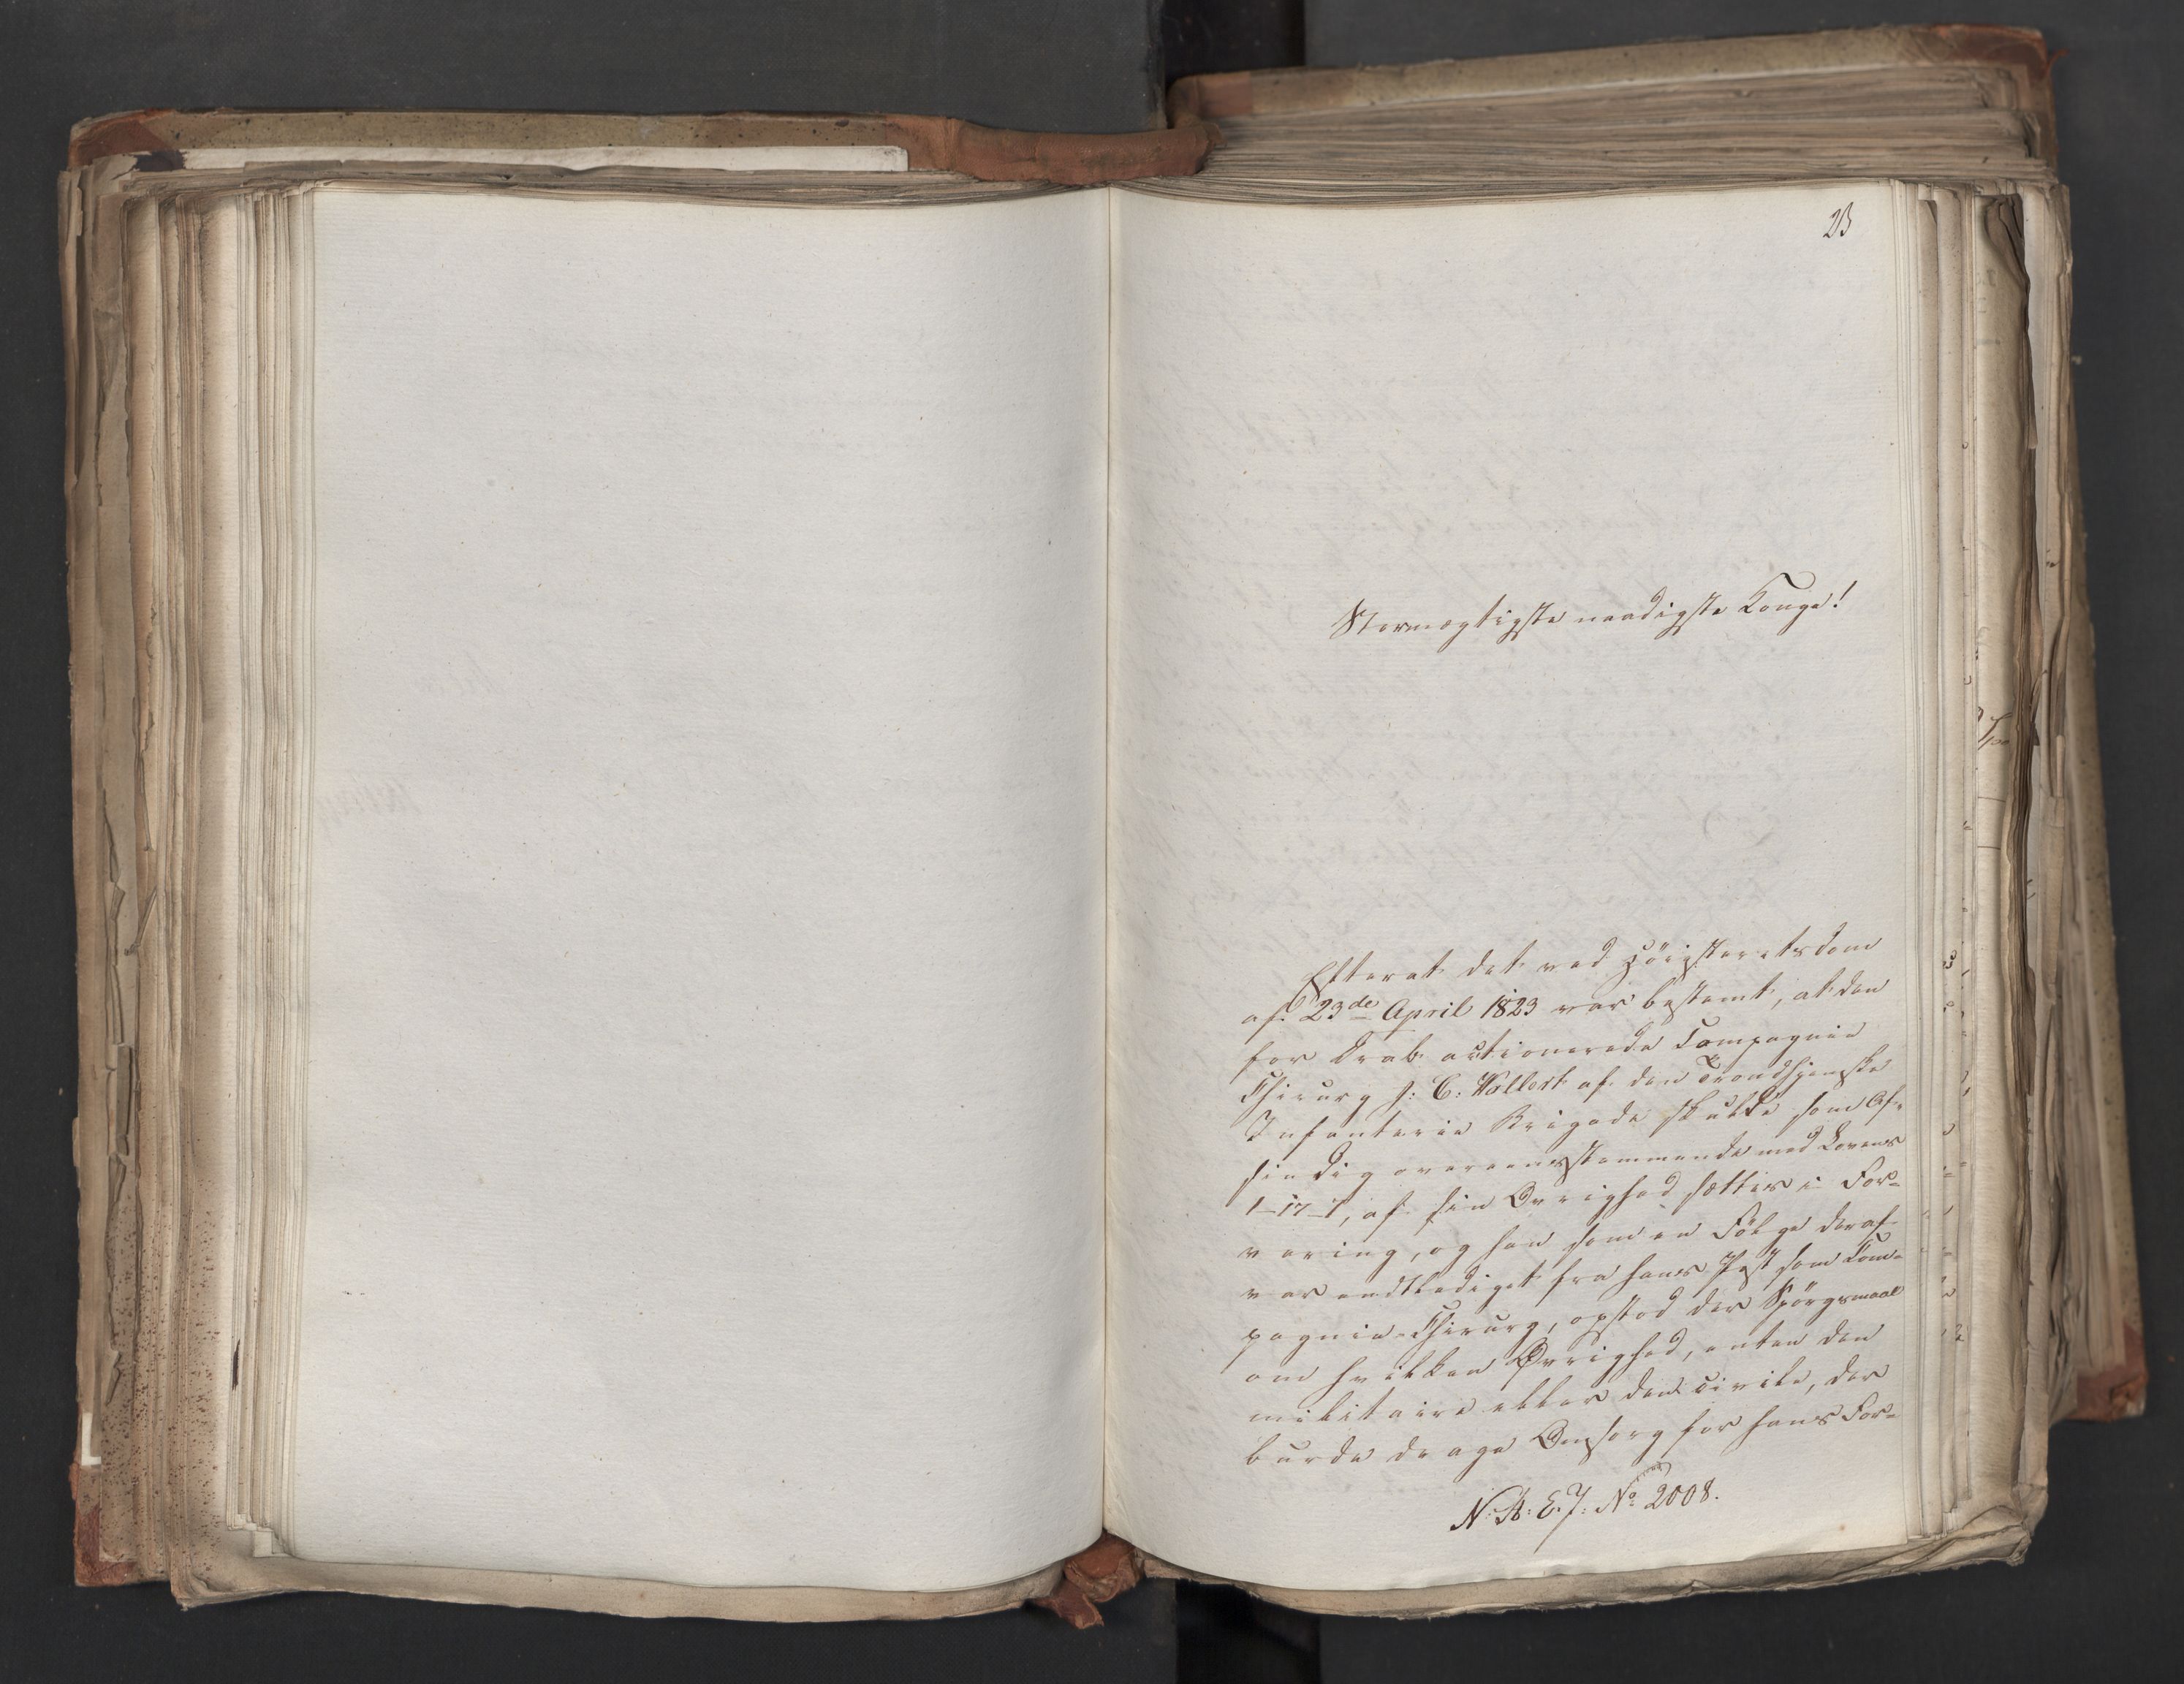 23
Stormægtigste naadigste Konge!
Efterat det ved Höiesteretsdom
af 23de April 1823 var bestemt, at den
for Drab actionerede Compagnie
Chirurg J: C: Vollert af den Trondhjemske
Infanterie Brigade skulde som Af-
sindig overeensstemmende med Lovens
1-17-7, af sin Øvrighed sættes i For-
varing, og han som en Fölge deraf
var entlediget fra hans Post som Com-
pagnie-Chirurg, opstod der Spörgsmaal
om hvilken Øvrighed, enten den
militaire eller den civile, der
burde drage Omsorg for hans For-
N: A: E: J: No 2008.